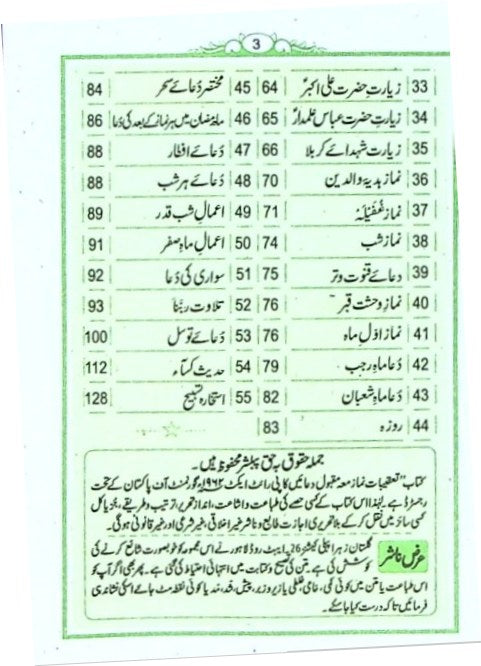 3
33 زیارتِ حضرت علی اکبرؑ 64
34 زیارتِ حضرت عباس علمدارؑ 65
35 زیارت شہدائے کربلا 66
36 نماز ہدیۂ والدین 70
37 نماز غفیلہ 71
38 نماز شب 74
39 دعائے قنوت وتر 75
40 نماز وحشت قبر 76
41 نماز اوّل ماہ 76
42 دُعا ماہِ رجب 79
43 دُعا ماہِ شعبان 82
44 روزہ 83
45 مختصر دُعائے سحر 84
46 ماہ رمضان میں ہر نماز کے بعد کی دُعا 86
47 دُعائے افطار 88
48 دُعائے ہر شب 88
49 اعمالِ شب قدر 89
50 اعمالِ ماہِ صفر 91
51 سواری کی دُعا 92
52 تلاوت ربّنا 93
53 دُعائے توسل 100
54 حدیث کساء 112
55 استخارہ تسبیح 128
جملہ حقوق بہ حق پبلشر محفوظ ہیں۔
کتاب "تعقیبات نماز معہ مقبول دعائیں کاپی رائٹ ایکٹ ۱۹۶۲ء گورنمنٹ آف پاکستان کے تحت
رجسٹرڈ ہے۔ لہٰذا اس کتاب کے کسی حصے کی طباعت و اشاعت، انداز تحریر، ترتیب و طریقے، جز یا کل
کسی سائز میں نقل کر کے بلا تحریری اجازت طابع و ناشر غیر اخلاقی، غیر شرعی اور غیر قانونی ہوگی۔
عرض ناشر
گلستان زہرا پبلی کیشنز 26 ایبٹ روڈ لاہور نے اس مجموعہ کو خوبصورت شائع کرنے کی
کوشش کی ہے۔ متن کی تصحیح و کتابت میں انتہائی احتیاط کی گئی ہے۔ پھر بھی اگر آپ کو
اس طباعت یا متن میں کوئی کمی، خامی، غلطی یا زیر و زبر، پیش، شد، مد یا کوئی نقطہ مٹ جائے اسکی نشاندہی
فرمائیں تاکہ درست کیا جا سکے۔